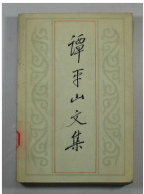 谭平山文集